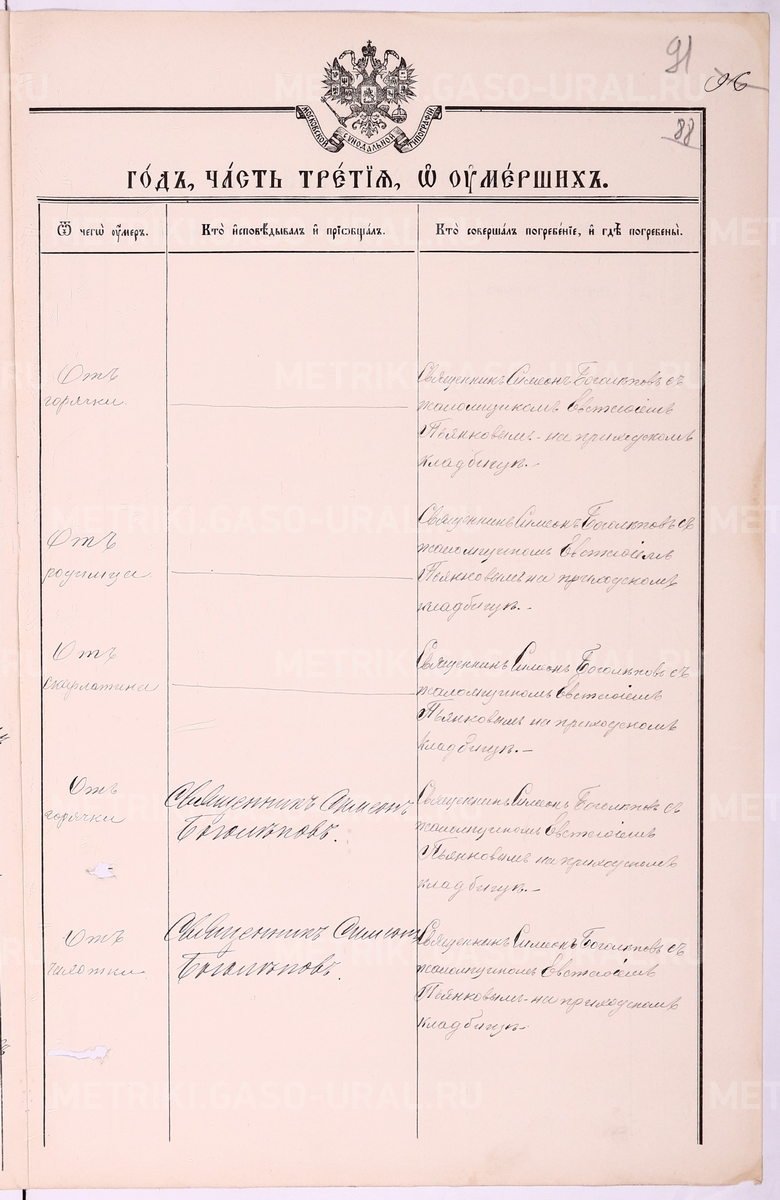 91
96
88
МОСКОВСКОЙ СѴНОДАЛЬНОЙ ТИПОГРАФІИ
ГО́ДЪ, ЧА́СТЬ ТРЕ́ТІѦ, Ѡ ОУМЕ́РШИХЪ.
Ѿ чегѡ̀ оу́меръ.
Кто̀ и҆сповѣ́дывалъ и҆ прїѡбща́лъ.
Кто̀ соверша́лъ погребе́нїе, и҆ гдѣ̀ погребены̀.
Отъ
горячки
Священникъ Симеонъ Боголѣповъ съ
псаломщикомъ Евстаѳіемъ
Пьянковымъ на приходскомъ
кладбищѣ.
Отъ
родимца
Священникъ Симеонъ Боголѣповъ съ
псаломщикомъ Евстаѳіемъ
Пьянковымъ на приходскомъ
кладбищѣ.
Отъ
скарлатина
Священникъ Симеонъ Боголѣповъ съ
псаломщикомъ Евстаѳіемъ
Пьянковымъ на приходскомъ
кладбищѣ.
Отъ
горячки
Священникъ Симеонъ
Боголѣповъ.
Священникъ Симеонъ Боголѣповъ съ
псаломщикомъ Евстаѳіемъ
Пьянковымъ на приходскомъ
кладбищѣ.
Отъ
чахотки
Священникъ Симеонъ
Боголѣповъ.
Священникъ Симеонъ Боголѣповъ съ
псаломщикомъ Евстаѳіемъ
Пьянковымъ на приходскомъ
кладбищѣ.
METRIKI.GASO-URAL.RU